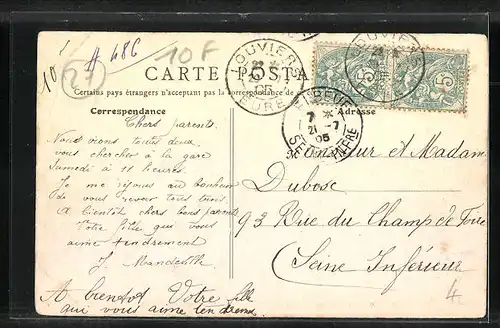 # 486
10 F
10
27
LOUVIERS
EURE
CARTE POSTALE
Certains pays étrangers n'acceptent pas la correspondance de c
7 *
21 - 7
05
Correspondance
Adresse
Chers parents
Nous irons toutes deux
vous chercher à la gare
Samedi à 11 heures.
Je me réjouis au bonheur
de vous revoir tous trois
A bientôt chers bons parents
Votre fille qui vous
aime tendrement
J.
A bientôt Votre fille
qui vous aime tendrement
Monsieur et Madam
Dubosc
93 Rue du Champ de Foire
Seine Inférieur
4